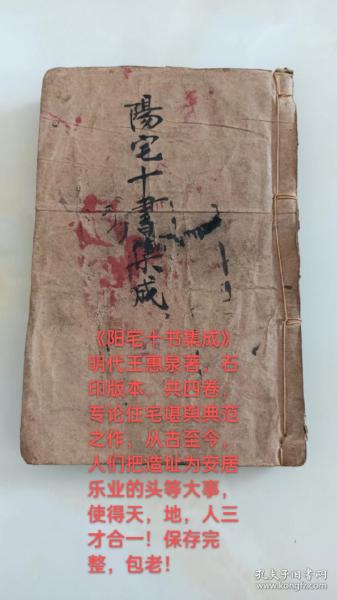 陽宅十書集成
《阳宅十书集成》
明代王惠泉著，石
印版本，共四卷，
专论住宅堪舆典范
之作，从古至今，
人们把造址为安居
乐业的头等大事，
使得天，地，人三
才合一！保存完
整，包老！
孔夫子旧书网